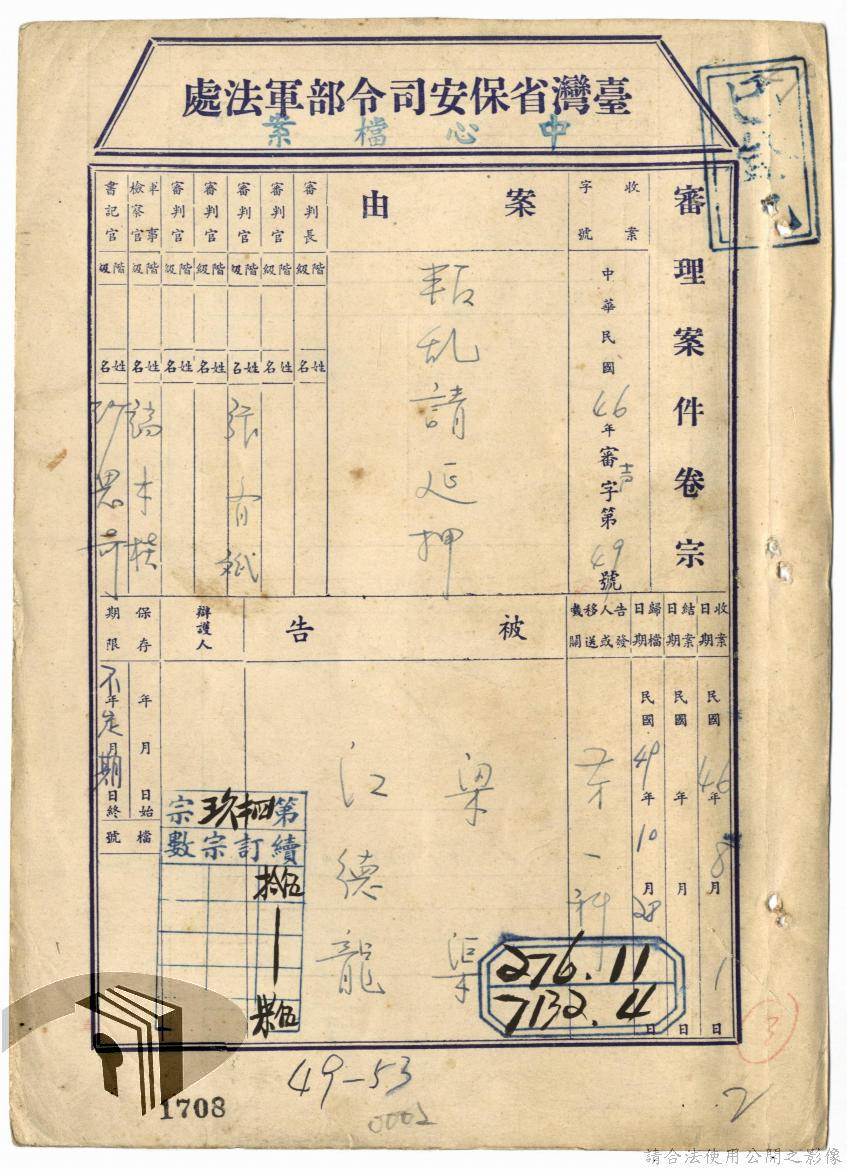 臺灣省保安司令部軍法處
中心檔案
審理案件卷宗
收案字號
中華民國46年審声字第49號
案由
叛乱請延押
審判長
階級
姓名
審判官
階級
姓名
審判官
階級
姓名
張有
審判官
階級
姓名
審判官
階級
姓名
軍事檢察官
階級
姓名
書記官
階級
姓名
收案日期
民國46年8月1日
結案日期
民國 年 月 日
歸檔日期
民國49年10月28日
告發人或移送機關
第一科
被告
梁渠
江德龍
辯護人
保存期限
年 月 日始
年 月 日終
不定期
檔號
第 宗
續訂宗數
拾伍
276.11
7132.4
3
49-53
2
0002
1708
請合法使用公開之影像